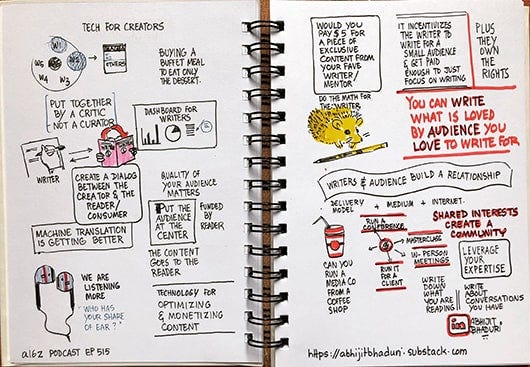 TECH FOR CREATORS
W1
W2
W3
W4
W6
BUYING A
BUFFET MEAL
TO EAT ONLY
THE DESSERT.
PUT TOGETHER
BY A CRITIC
NOT A CURATOR
DASHBOARD FOR
WRITERS
WRITER
CREATE A DIALOG
BETWEEN THE
CREATOR & THE
READER/
CONSUMER
QUALITY OF
YOUR AUDIENCE
MATTERS
PUT THE
AUDIENCE
AT THE
CENTER
FUNDED
BY
READER
MACHINE TRANSLATION
IS GETTING BETTER
THE CONTENT
GOES TO THE
READER
WE ARE
LISTENING
MORE
"WHO HAS
YOUR SHARE
OF EAR?"
TECHNOLOGY FOR
OPTIMIZING
& MONETIZING
CONTENT
a16z PODCAST EP 515
WOULD YOU
PAY $5 FOR
A PIECE OF
EXCLUSIVE
CONTENT FROM
YOUR FAVE
WRITER/
MENTOR
IT INCENTIVIZES
THE WRITER TO
WRITE FOR A
SMALL AUDIENCE
& GET PAID
ENOUGH TO JUST
FOCUS ON WRITING
PLUS
THEY
OWN
THE
RIGHTS
DO THE MATH FOR
THE WRITER
YOU CAN WRITE
WHAT IS LOVED
BY AUDIENCE YOU
LOVE TO WRITE FOR
WRITERS & AUDIENCE BUILD A RELATIONSHIP
DELIVERY
MODEL + MEDIUM + INTERNET.
CAN YOU
RUN A
MEDIA CO
FROM A
COFFEE
SHOP
RUN A
CONFERENCE
MASTERCLASS
IN-PERSON
MEETINGS
RUN IT
FOR A
CLIENT
SHARED INTERESTS
CREATE A
COMMUNITY
LEVERAGE
YOUR
EXPERTISE
WRITE
DOWN
WHAT
YOU ARE
READING
WRITE
ABOUT
CONVERSATIONS
YOU HAVE
in
ABHIJIT
BHADURI
https://abhijitbhaduri.substack.com